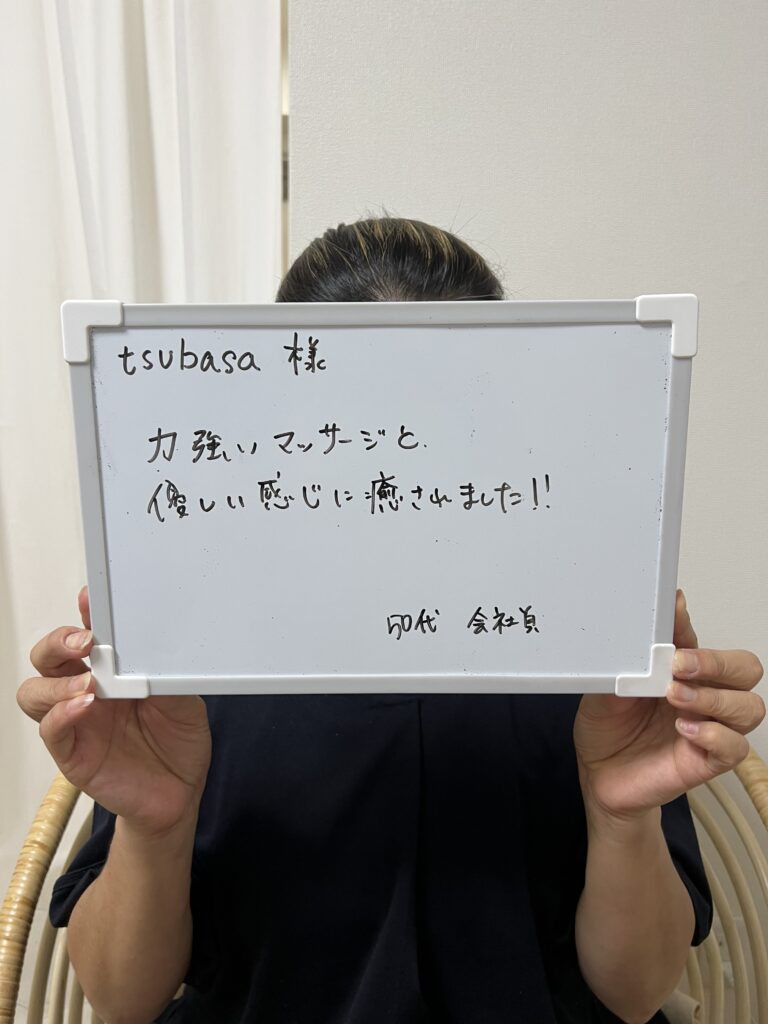 tsubasa 様
力強いマッサージと、
優しい感じに癒されました!!
50代 会社員